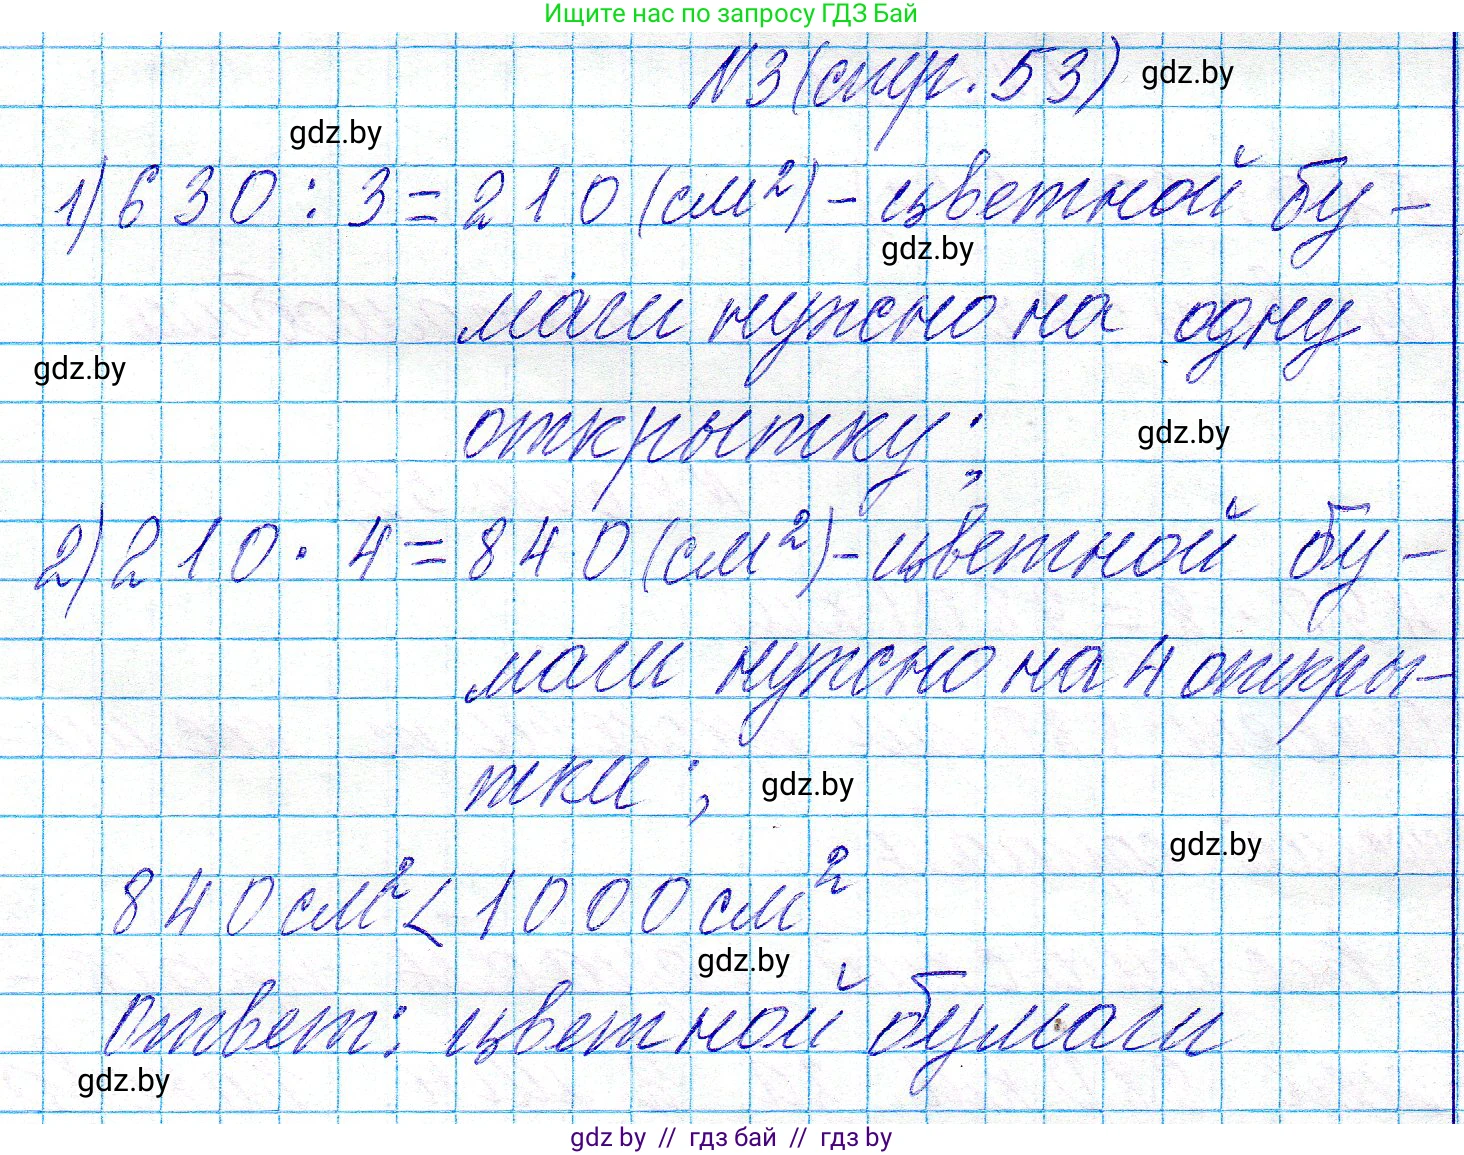 Ищите нас по запросу ГДЗ Бай
N3 (стр. 53) gdz.by
gdz.by
1) 630 : 3 = 210 (см²) - цветной бу-
gdz.by
маги нужно на одну
gdz.by
открытку; gdz.by
2) 210 · 4 = 840 (см²) - цветной бу-
маги нужно на 4 откры-
тки; gdz.by
gdz.by
840 см² < 1000 см²
gdz.by
ответ: цветной бумаги
gdz.by
gdz by // гдз бай // гдз by